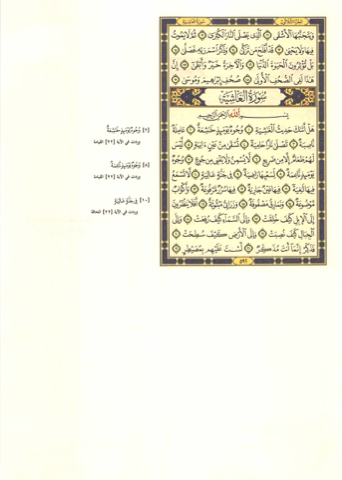 وَيَتَجَنَّبُهَا الْأَشْقَى ۝ الَّذِي يَصْلَى النَّارَ الْكُبْرَى ۝ ثُمَّ لَا يَمُوتُ
فِيهَا وَلَا يَحْيَى ۝ قَدْ أَفْلَحَ مَن تَزَكَّى ۝ وَذَكَرَ اسْمَ رَبِّهِ فَصَلَّى ۝
بَلْ تُؤْثِرُونَ الْحَيَاةَ الدُّنْيَا ۝ وَالْآخِرَةُ خَيْرٌ وَأَبْقَى ۝ إِنَّ
هَذَا لَفِي الصُّحُفِ الْأُولَى ۝ صُحُفِ إِبْرَاهِيمَ وَمُوسَى ۝
سُورَةُ الْغَاشِيَةِ
بِسْمِ اللَّهِ الرَّحْمَنِ الرَّحِيمِ
هَلْ أَتَاكَ حَدِيثُ الْغَاشِيَةِ ۝ وُجُوهٌ يَوْمَئِذٍ خَاشِعَةٌ ۝ عَامِلَةٌ
نَّاصِبَةٌ ۝ تَصْلَى نَارًا حَامِيَةً ۝ تُسْقَى مِنْ عَيْنٍ آنِيَةٍ ۝ لَّيْسَ
لَهُمْ طَعَامٌ إِلَّا مِن ضَرِيعٍ ۝ لَّا يُسْمِنُ وَلَا يُغْنِي مِن جُوعٍ ۝ وُجُوهٌ
يَوْمَئِذٍ نَّاعِمَةٌ ۝ لِّسَعْيِهَا رَاضِيَةٌ ۝ فِي جَنَّةٍ عَالِيَةٍ ۝ لَّا تَسْمَعُ
فِيهَا لَاغِيَةً ۝ فِيهَا عَيْنٌ جَارِيَةٌ ۝ فِيهَا سُرُرٌ مَّرْفُوعَةٌ ۝ وَأَكْوَابٌ
مَّوْضُوعَةٌ ۝ وَنَمَارِقُ مَصْفُوفَةٌ ۝ وَزَرَابِيُّ مَبْثُوثَةٌ ۝ أَفَلَا يَنظُرُونَ
إِلَى الْإِبِلِ كَيْفَ خُلِقَتْ ۝ وَإِلَى السَّمَاءِ كَيْفَ رُفِعَتْ ۝ وَإِلَى
الْجِبَالِ كَيْفَ نُصِبَتْ ۝ وَإِلَى الْأَرْضِ كَيْفَ سُطِحَتْ ۝
فَذَكِّرْ إِنَّمَا أَنتَ مُذَكِّرٌ ۝ لَّسْتَ عَلَيْهِم بِمُصَيْطِرٍ ۝
٥٩٢
[٢] وُجُوهٌ يَوْمَئِذٍ خَاشِعَةٌ
وردت في الآية [٢٢] القيامة
[٨] وُجُوهٌ يَوْمَئِذٍ نَّاعِمَةٌ
وردت في الآية [٢٢] القيامة
[١٠] فِي جَنَّةٍ عَالِيَةٍ
وردت في الآية [٢٢] الحاقة